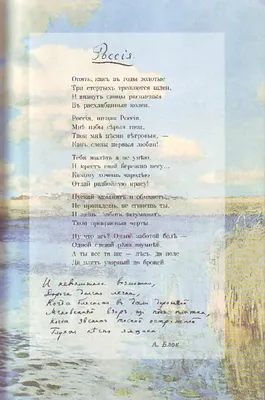 Россія.
Опять, какъ въ годы золотые
Три стертыхъ треплются шлеи,
И вязнутъ спицы росписныя
Въ расхлябанныя колеи.
Россія, нищая Россія,
Мнѣ избы сѣрыя твои,
Твои мнѣ пѣсни вѣтровыя, —
Какъ слезы первыя любви!
Тебя жалѣть я не умѣю,
И крестъ свой бережно несу...
Какому хочешь чародѣю
Отдай разбойную красу!
Пускай заманитъ и обманетъ, —
Не пропадешь, не сгинешь ты,
И лишь забота затуманитъ
Твои прекрасныя черты.
Ну что жъ? Одной заботой болѣ —
Одной слезой рѣка шумнѣй,
А ты все та же — лѣсъ, да поле
Да платъ узорный до бровей.
И невозможное возможно,
Дорога долгая легка,
Когда блеснетъ в дали дорожной
Мгновенный взоръ из подъ платка,
Когда звенитъ тоской острожной
Глухая пѣсня ямщика
А. Блок